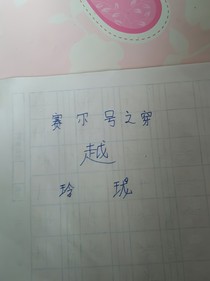 赛尔号之穿
越
玲珑